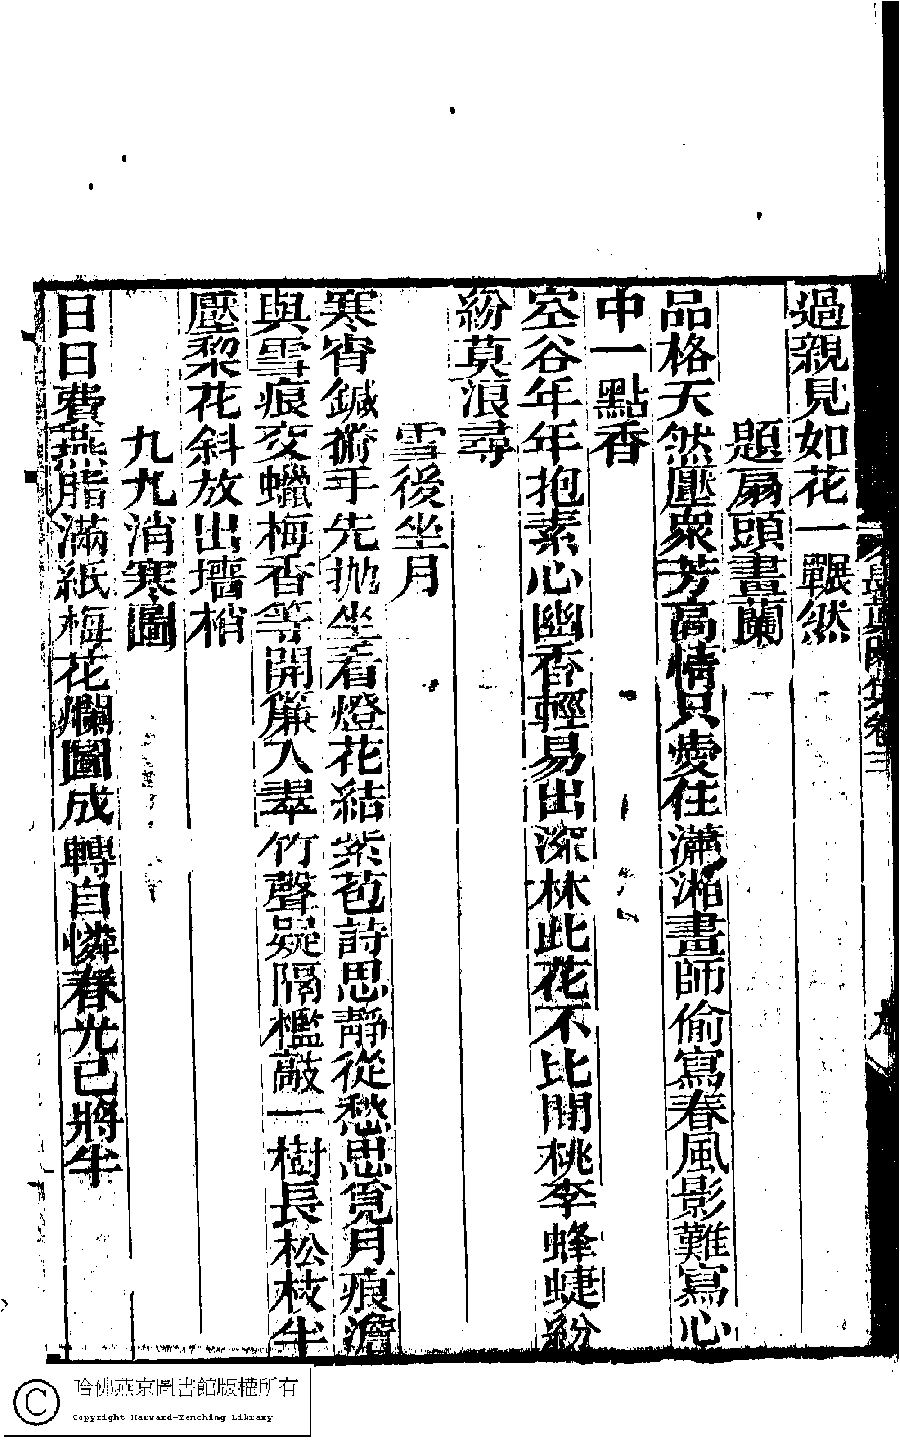 過親見如花一囅然
題扇頭畫蘭
品格天然壓衆芳高情只愛住瀟湘畫師偷寫春風影難寫心
中一點香
空谷年年抱素心幽香輕易出深林此花不比閒桃李蜂蜨紛
紛莫浪尋
雪後坐月
寒宵鍼術手先拋坐看燈花結紫苞詩思靜從愁思覓月痕澹
與雪痕交蠟梅香等開簾入翠竹聲疑隔檻敲一樹長松枝半
壓梨花斜放出墻梢
九九消寒圖
日日費燕脂滿紙梅花爛圖成轉自憐春光已將半
卷三
九
哈佛燕京圖書館版權所有
Copyright Harvard-Yenching Library